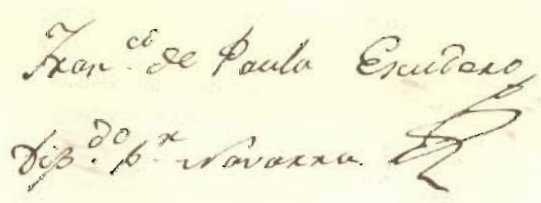 Fran.co de Paula Escudero
Dip.do p.r Navarra